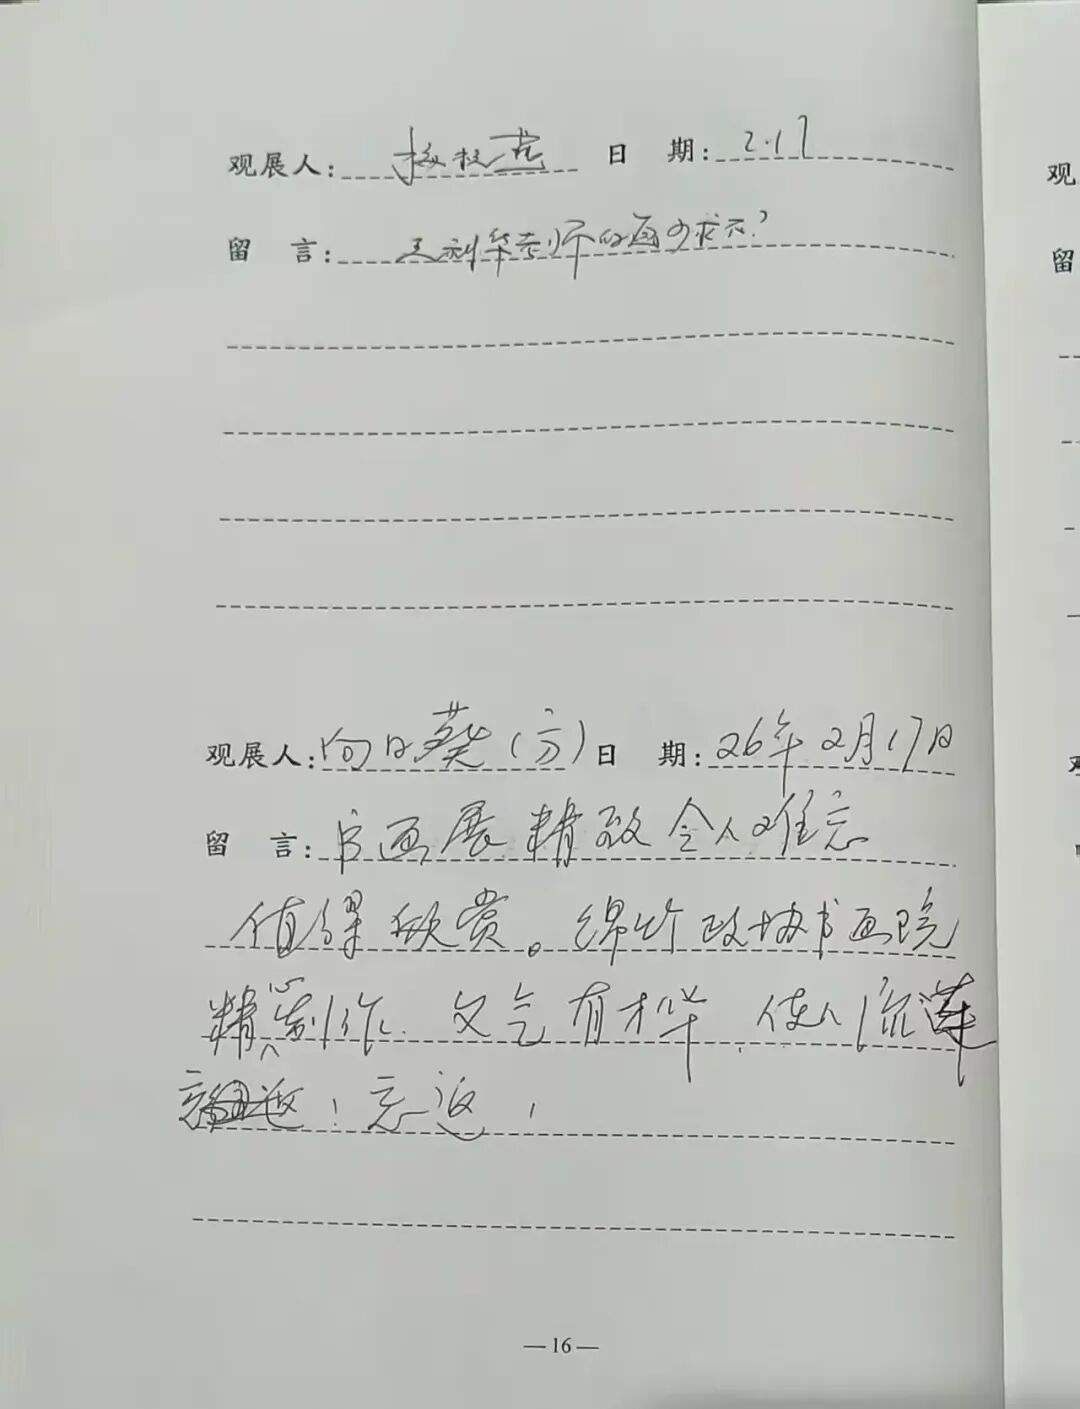 观展人: 日 期: 2.17
留 言: 老师的画
观展人: 向日葵(方) 日 期: 26年2月17日
留 言: 书画展精致令人难忘
值得欣赏。绵竹政协书画院
精心制作.文气有才华.使人流莲
忘返!忘返,
—16—
观
留